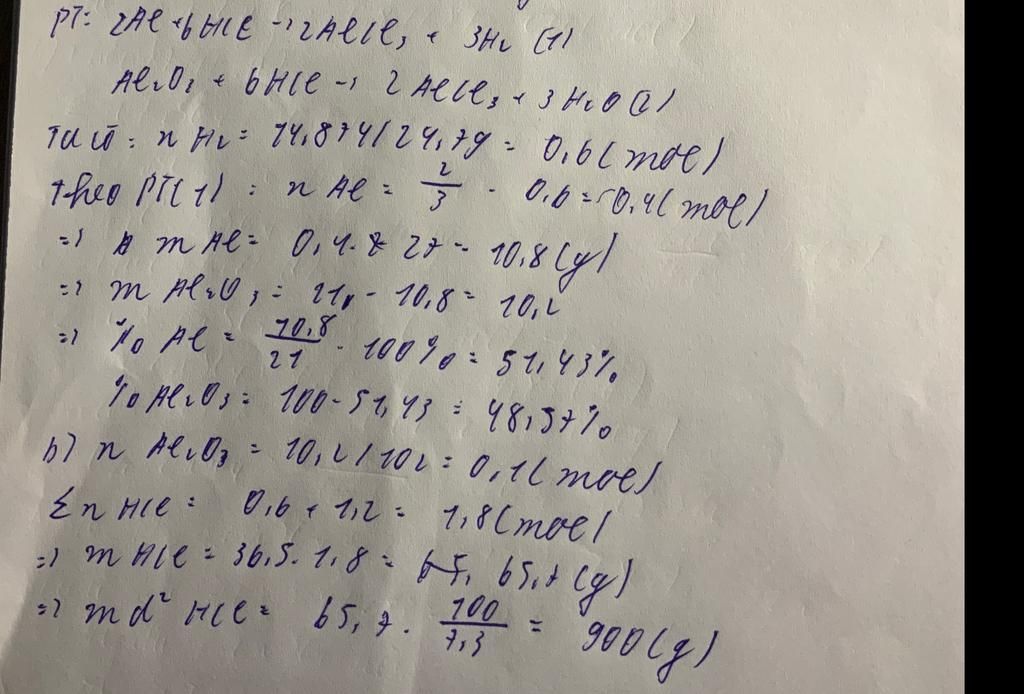 PT: 2Al + 6HCl → 2AlCl₃ + 3H₂ (1)
Al₂O₃ + 6HCl → 2AlCl₃ + 3H₂O (2)
n H₂ = 14,874/24,79 = 0,6 (mol)
theo PT(1) : n Al = 2/3 . 0,6 = 0,4 (mol)
=) m Al = 0,4 . 27 = 10,8 (g)
=) m Al₂O₃ = 21 - 10,8 = 10,2
=) % Al = 10,8/21 . 100% = 51,43%
% Al₂O₃ = 100 - 51,43 = 48,57%
b) n Al₂O₃ = 10,2/102 = 0,1 (mol)
Σ n HCl = 0,6 + 1,2 = 1,8 (mol)
=) m HCl = 36,5 . 1,8 = 65,7 (g)
=) md² HCl = 65,7 . 100/7,3 = 900 (g)